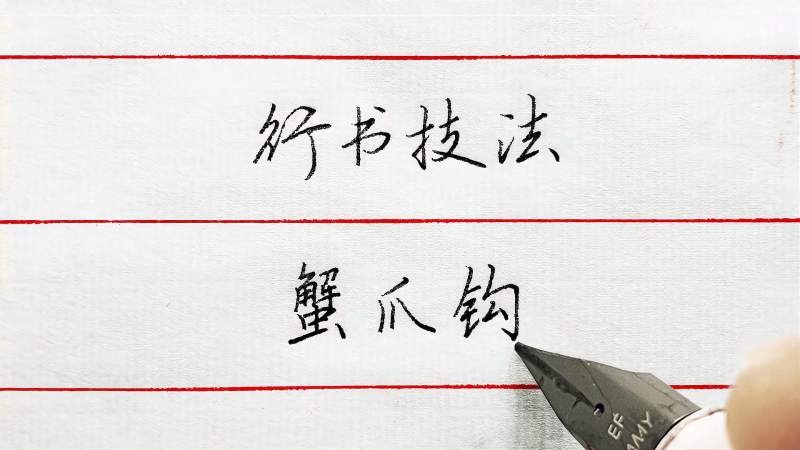 行书技法
蟹爪钩
EF